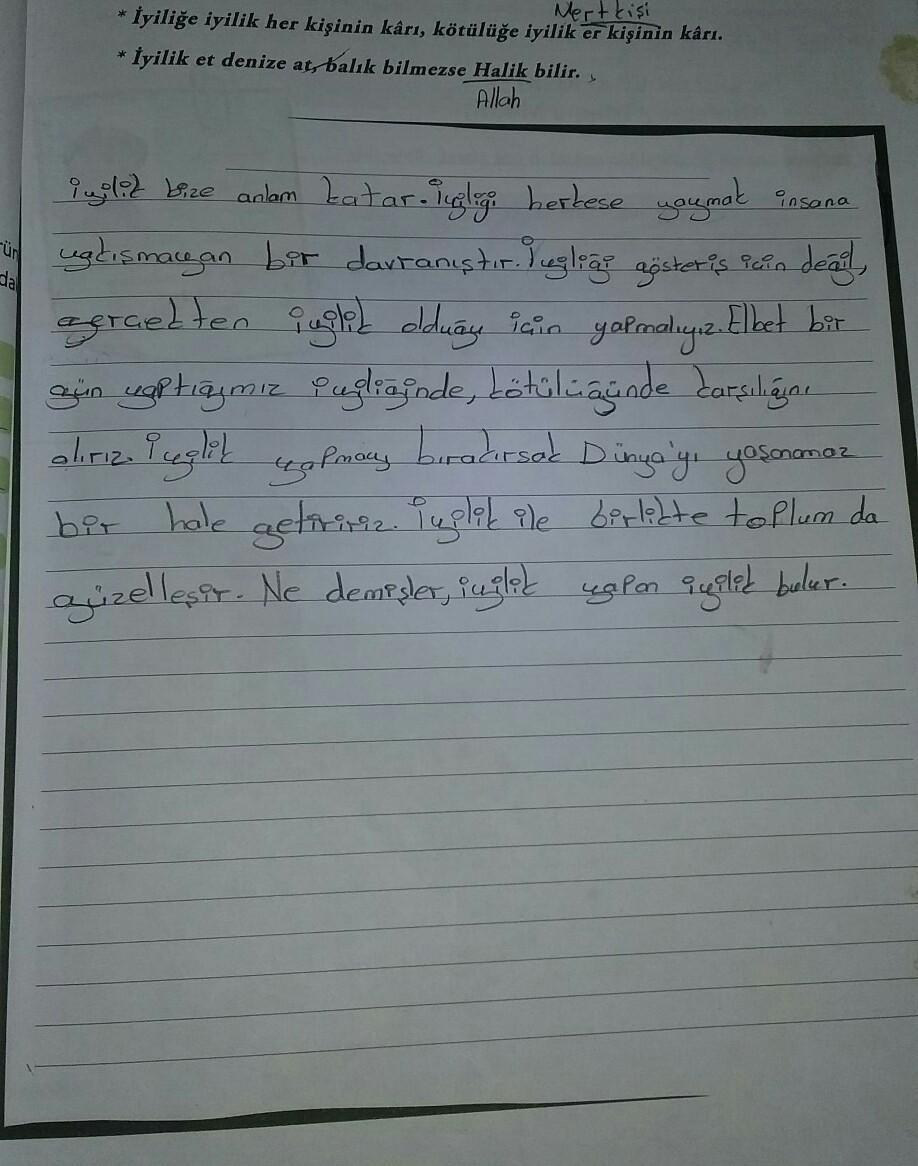 Mert kişi
* İyiliğe iyilik her kişinin kârı, kötülüğe iyilik er kişinin kârı.
* İyilik et denize at, balık bilmezse Halik bilir.
Allah
iyilik bize anlam katar. İyiliği herkese yaymak insana
yakışmayan bir davranıştır. İyiliği gösteriş için değil,
gerçekten iyilik olduğu için yapmalıyız. Elbet bir
gün yaptığımız iyiliğinde, kötülüğünde karşılığını
alırız. İyilik yapmayı bırakırsak Dünya'yı yaşanamaz
bir hale getiririz. İyilik ile birlikte toplum da
güzelleşir. Ne demişler, iyilik yapan iyilik bulur.
ün
da